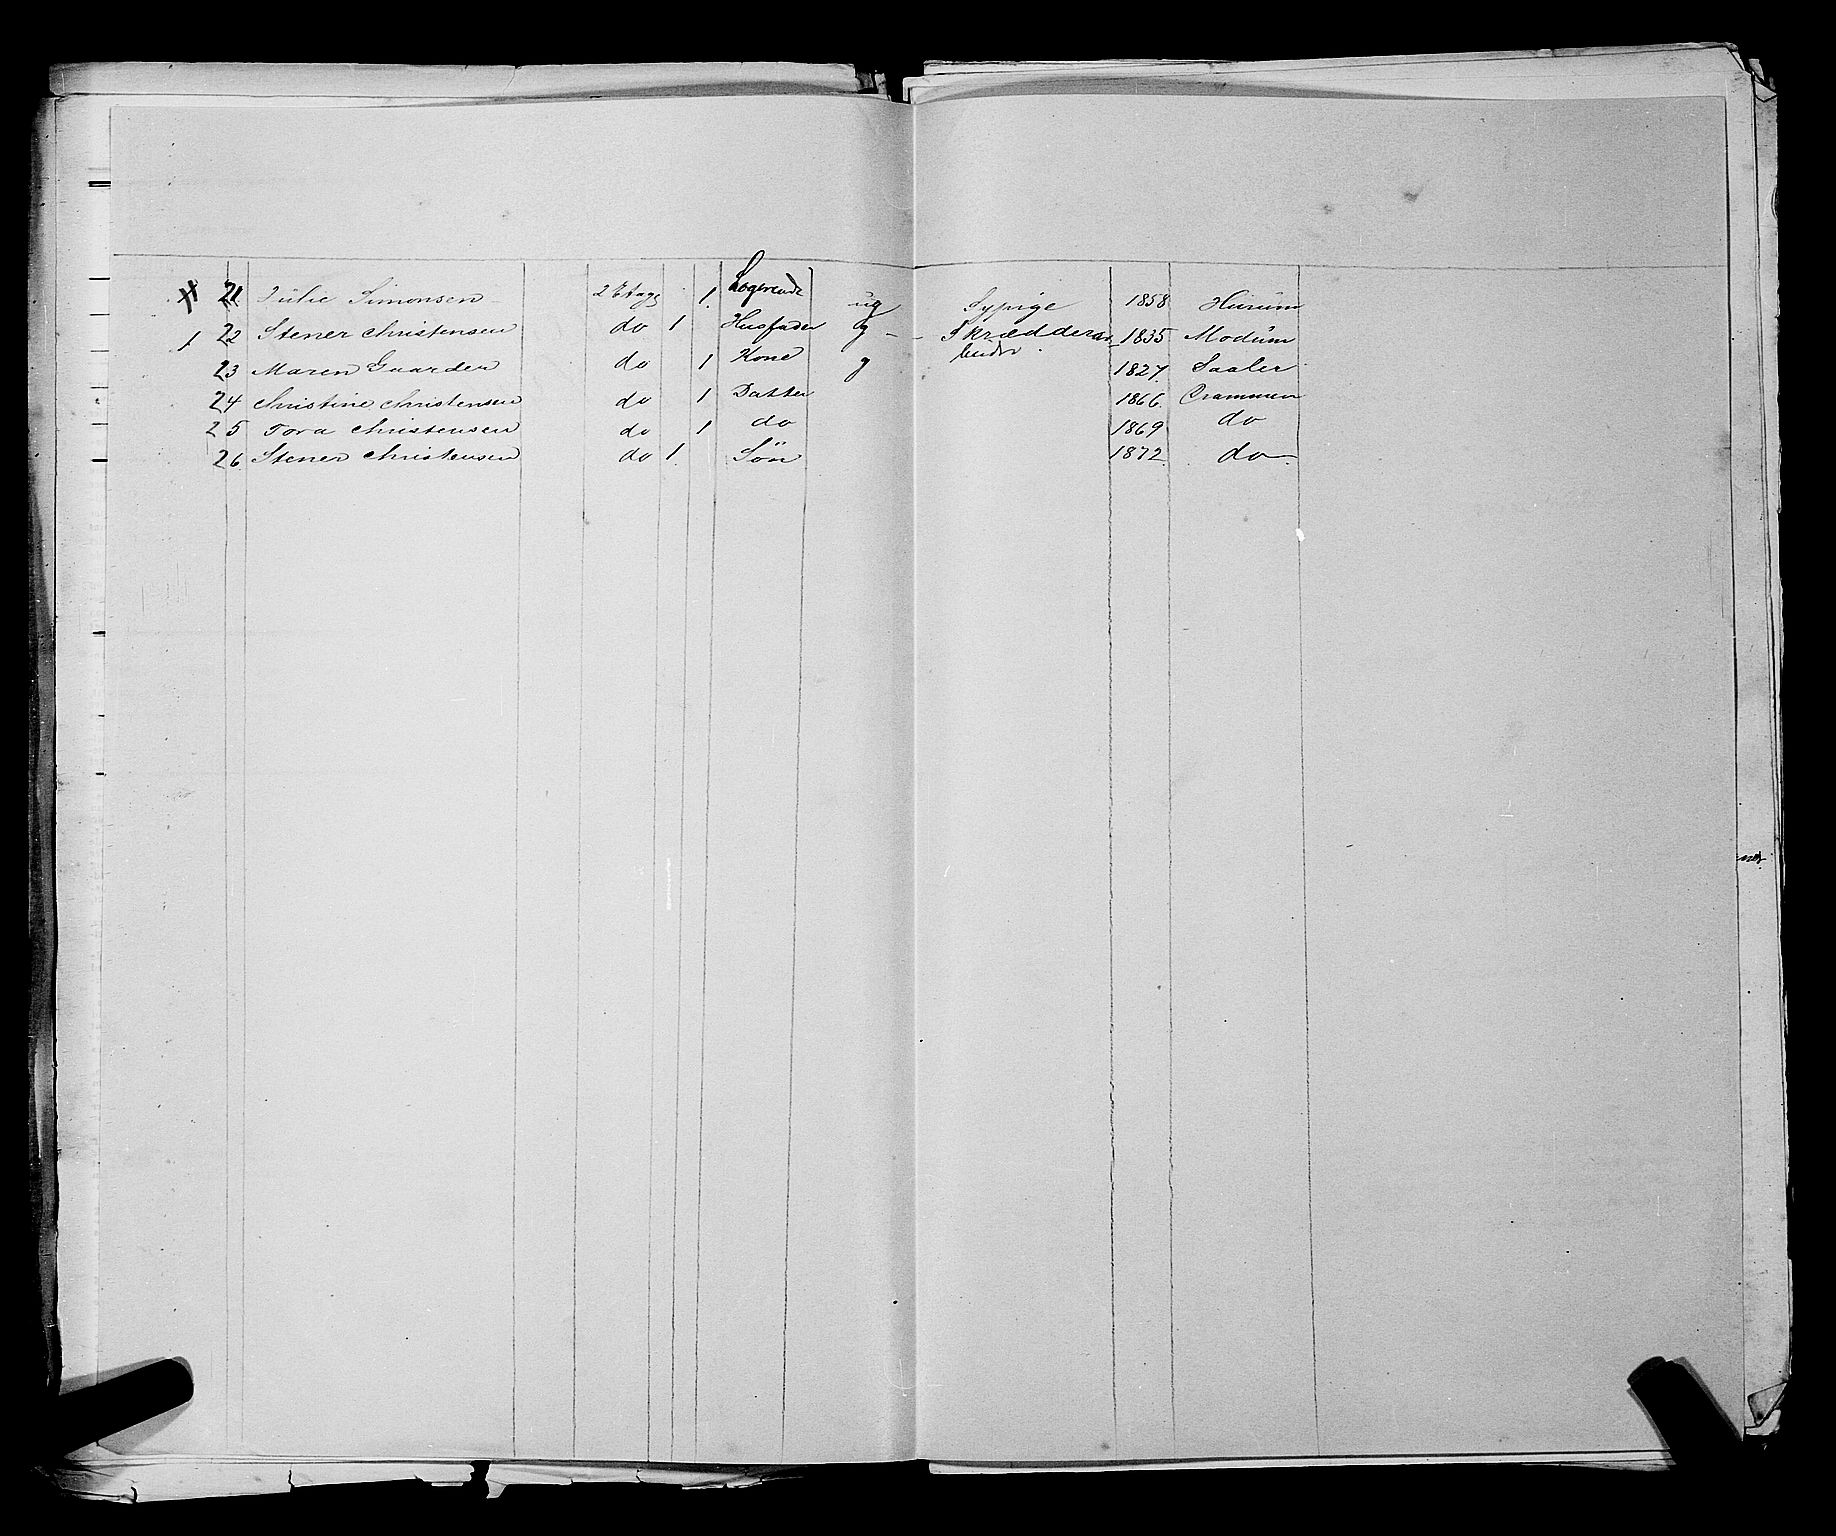 21 Julie Simonsen 2 Etage 1 Logerende ug Sypige 1858 Hurum
1 22 Stener Christensen do 1 Husfader g Skrædderar-
beider 1835 Modum
23 Maren Gaarder do 1 Kone g 1827 Saaler
24 Christine Christensen do 1 Datter 1866 Drammen
25 Tora Christensen do 1 do 1869 do
26 Stener Christensen do 1 Søn 1872 do